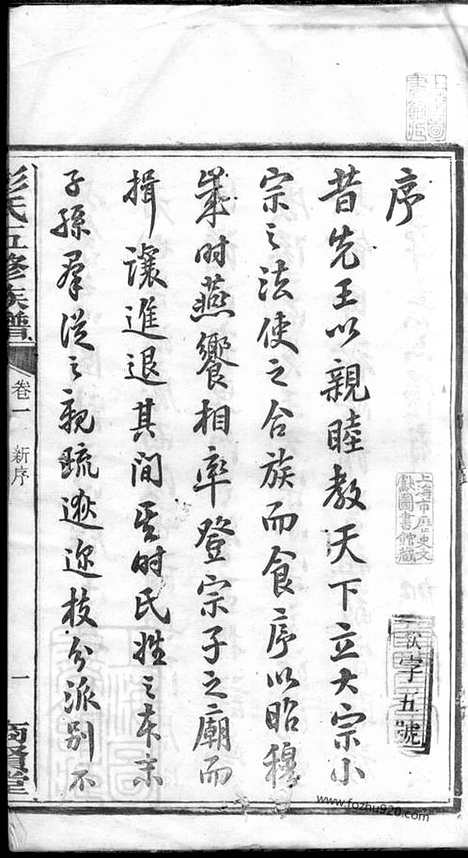 序
昔先王以親睦教天下立大宗小
宗之法使之合族而食序以昭穆
歲时燕饗相率登宗子之廟而
揖讓進退其间
时氏姓之本末
子孫羣從之親疏遠迩枝分派别不
彭氏五修族譜
卷一 新序
一
商賢堂
上海市歷史文
獻圖書館藏
字五號
www.fozhu920.com